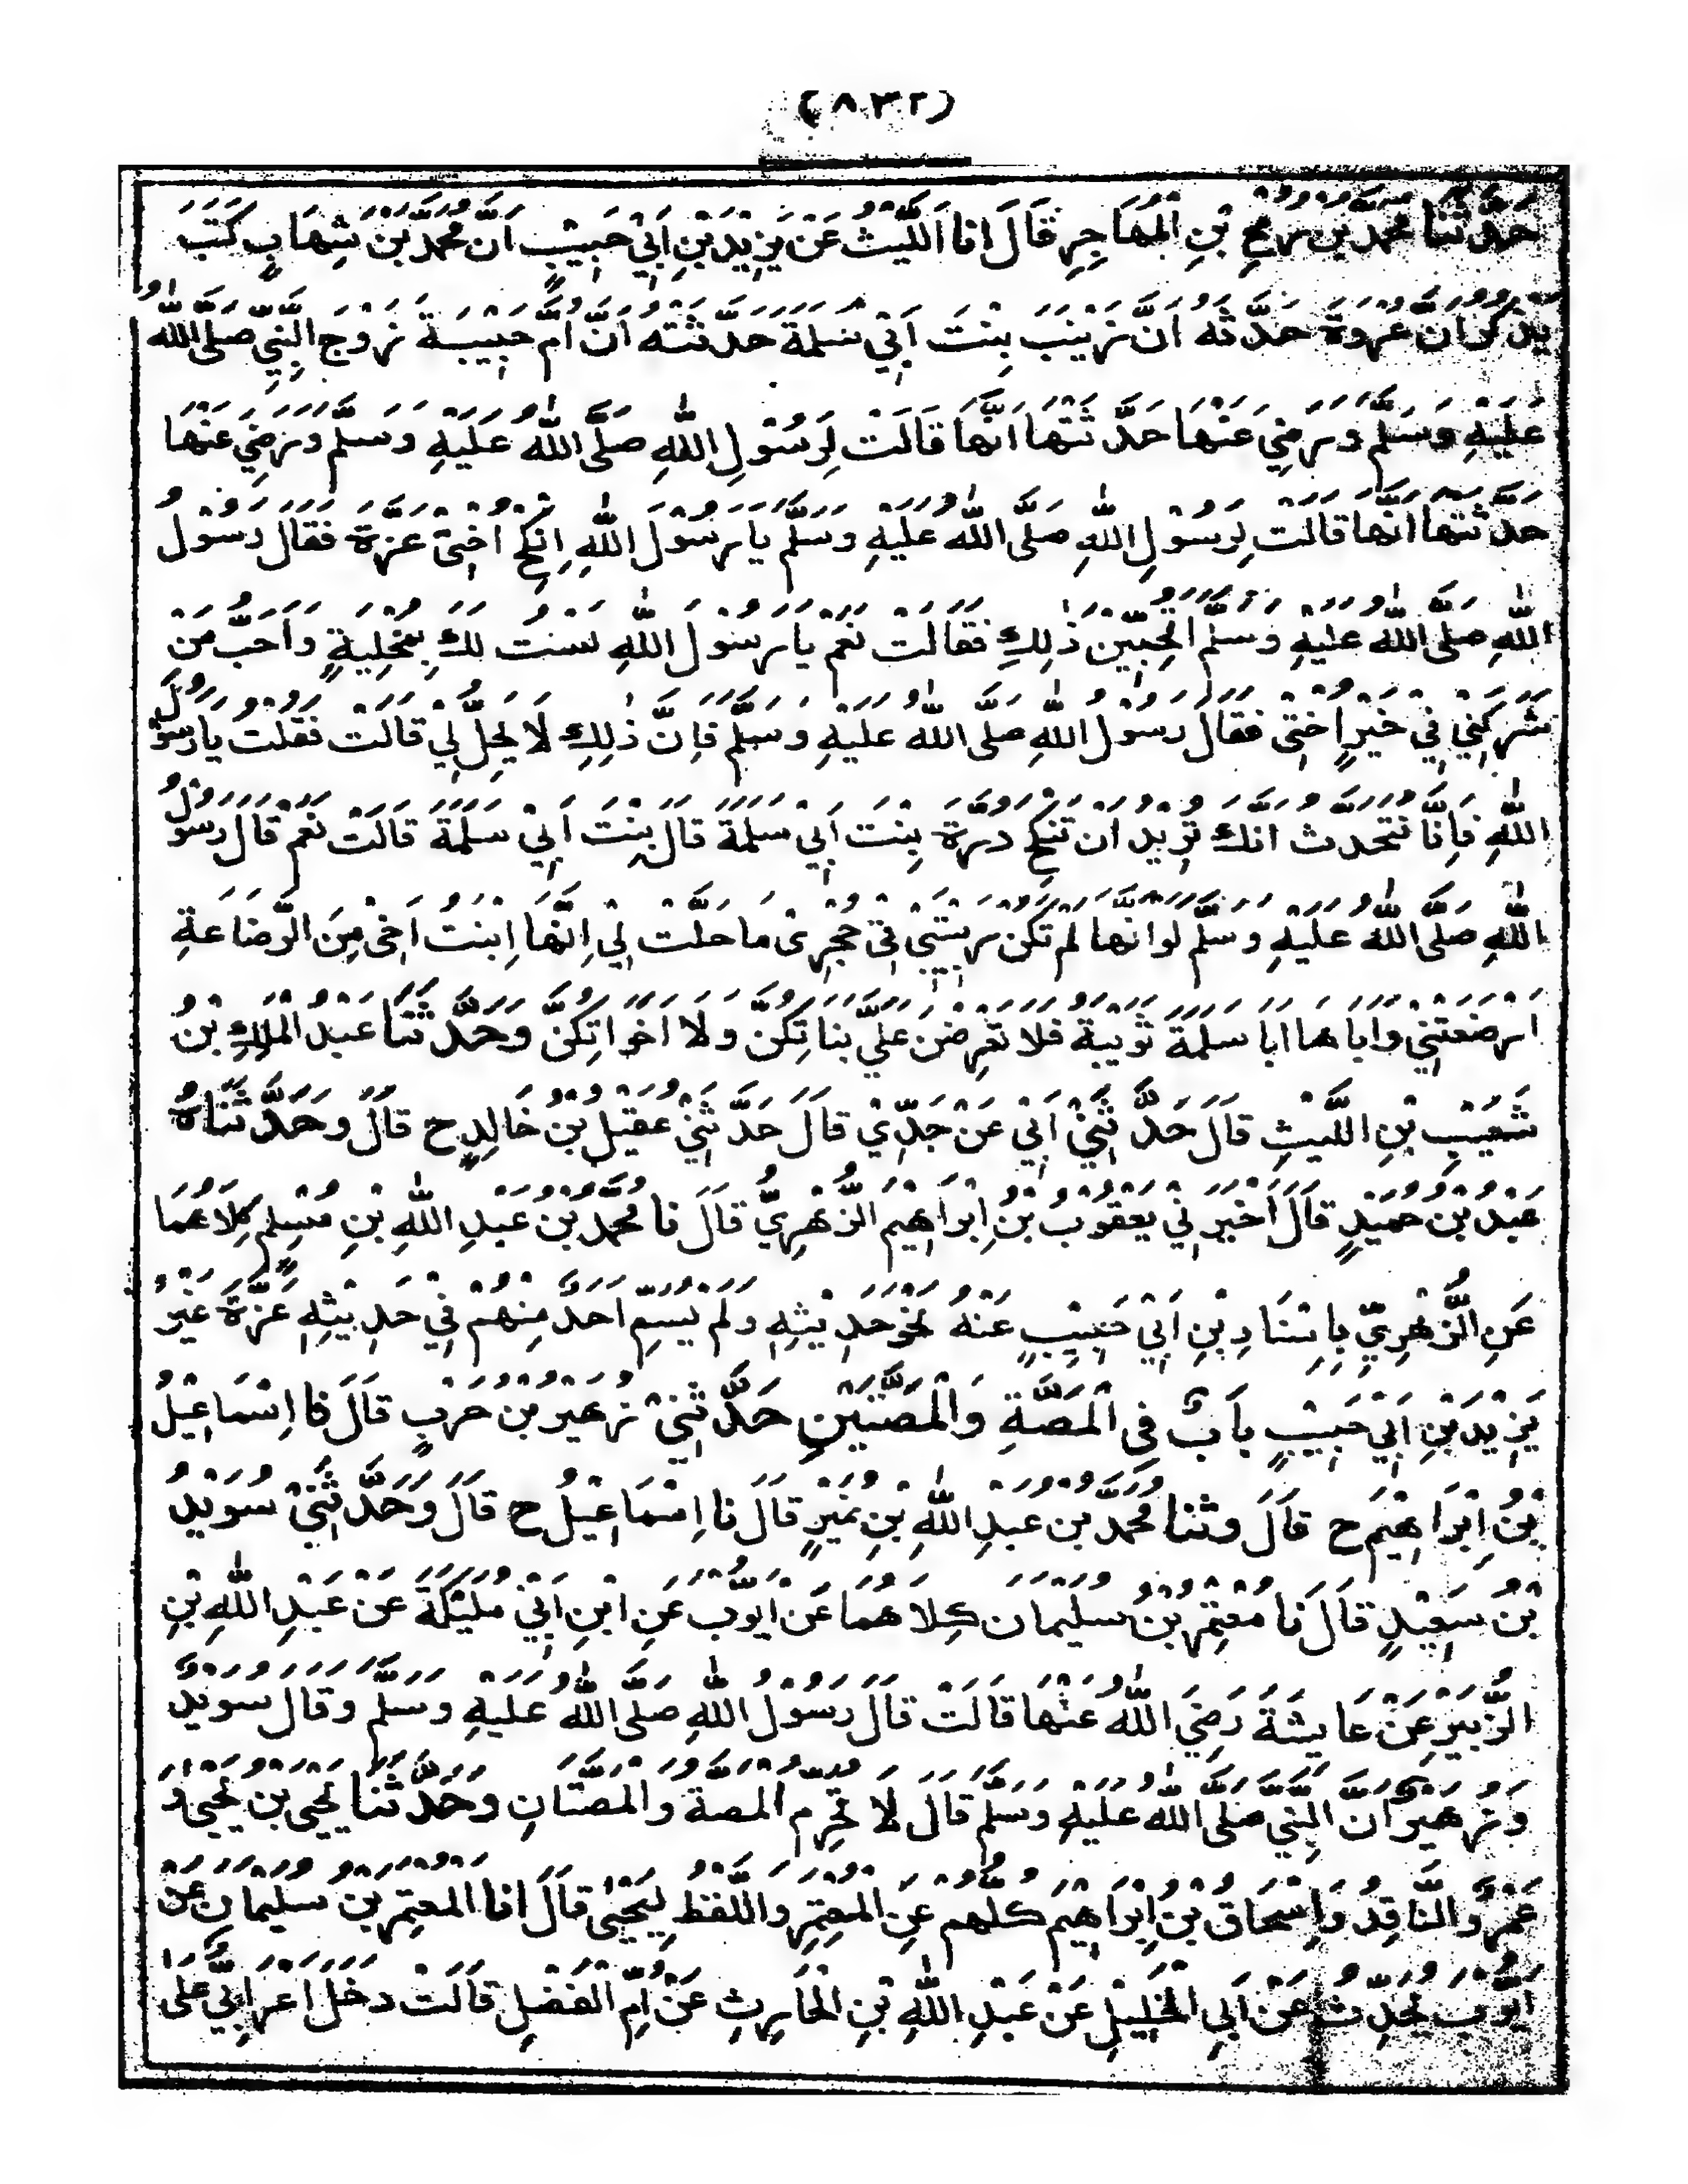 (٨٣٢)
حَدَّثَنَا مُحَمَّدُ بْنُ رُمْحِ بْنِ الْمُهَاجِرِ قَالَ اَنَا اَللَّيْثُ عَنْ يَزِيْدَ بْنِ اَبِيْ حَبِيْبٍ اَنَّ مُحَمَّدَ بْنَ شِهَابٍ كَتَبَ
يَذْكُرُ اَنَّ عُرْوَةَ حَدَّثَهُ اَنَّ زَيْنَبَ بِنْتَ اَبِيْ سَلَمَةَ حَدَّثَتْهُ اَنَّ اُمَّ حَبِيْبَةَ زَوْجَ النَّبِيِّ صَلَّى اللّٰهُ
عَلَيْهِ وَسَلَّمَ وَرَضِيَ عَنْهَا حَدَّثَتْهَا اَنَّهَا قَالَتْ لِرَسُوْلِ اللّٰهِ صَلَّى اللّٰهُ عَلَيْهِ وَسَلَّمَ وَرَضِيَ عَنْهَا
حَدَّثَتْهَا اَنَّهَا قَالَتْ لِرَسُوْلِ اللّٰهِ صَلَّى اللّٰهُ عَلَيْهِ وَسَلَّمَ يَا رَسُوْلَ اللّٰهِ اِنْكِحْ اُخْتِيْ عَزَّةَ فَقَالَ رَسُوْلُ
اللّٰهِ صَلَّى اللّٰهُ عَلَيْهِ وَسَلَّمَ اَتُحِبِّيْنَ ذٰلِكِ فَقَالَتْ نَعَمْ يَا رَسُوْلَ اللّٰهِ لَسْتُ لَكَ بِمُخْلِيَةٍ وَاَحَبُّ مَنْ
شَرِكَنِيْ فِيْ خَيْرٍ اُخْتِيْ فَقَالَ رَسُوْلُ اللّٰهِ صَلَّى اللّٰهُ عَلَيْهِ وَسَلَّمَ فَاِنَّ ذٰلِكِ لَا يَحِلُّ لِيْ قَالَتْ فَقُلْتُ يَا رَسُوْلَ
اللّٰهِ فَاِنَّا نَتَحَدَّثُ اَنَّكَ تُرِيْدُ اَنْ تَنْكِحَ دُرَّةَ بِنْتَ اَبِيْ سَلَمَةَ قَالَ بِنْتَ اَبِيْ سَلَمَةَ قَالَتْ نَعَمْ قَالَ رَسُوْلُ
اللّٰهِ صَلَّى اللّٰهُ عَلَيْهِ وَسَلَّمَ لَوْ اَنَّهَا لَمْ تَكُنْ رَبِيْبَتِيْ فِيْ حَجْرِىْ مَا حَلَّتْ لِيْ اِنَّهَا اِبْنَتُ اَخِىْ مِنَ الرَّضَاعَةِ
اَرْضَعَتْنِيْ وَاَبَاهَا اَبَا سَلَمَةَ ثُوَيْبَةُ فَلَا تَعْرِضْنَ عَلَيَّ بَنَاتِكُنَّ وَلَا اَخَوَاتِكُنَّ وَحَدَّثَنَا عَبْدُ الْمَلِكِ بْنُ
شُعَيْبِ بْنِ اللَّيْثِ قَالَ حَدَّثَنِيْ اَبِيْ عَنْ جَدِّيْ قَالَ حَدَّثَنِيْ عُقَيْلُ بْنُ خَالِدٍ ح قَالَ وَحَدَّثَنَاهُ
عَبْدُ بْنُ حُمَيْدٍ قَالَ اَخْبَرَنِيْ يَعْقُوْبُ بْنُ اِبْرَاهِيْمَ الزُّهْرِيُّ قَالَ نَا مُحَمَّدُ بْنُ عَبْدِ اللّٰهِ بْنِ مُسْلِمٍ كِلَاهُمَا
عَنِ الزُّهْرِيِّ بِاِسْنَادِ بْنِ اَبِيْ حَبِيْبٍ عَنْهُ نَحْوَ حَدِيْثِهِ وَلَمْ يُسَمِّ اَحَدٌ مِنْهُمْ فِيْ حَدِيْثِهِ عَزَّةَ غَيْرَ
يَزِيْدَ بْنِ اَبِيْ حَبِيْبٍ بَابٌ فِى الْمَصَّةِ وَالْمَصَّتَيْنِ حَدَّثَنِيْ زُهَيْرُ بْنُ حَرْبٍ قَالَ نَا اِسْمَاعِيْلُ
بْنُ اِبْرَاهِيْمَ ح قَالَ وثنا مُحَمَّدُ بْنُ عَبْدِ اللّٰهِ بْنِ نُمَيْرٍ قَالَ نَا اِسْمَاعِيْلُ ح قَالَ وَحَدَّثَنِيْ سُوَيْدُ
بْنُ سَعِيْدٍ قَالَ نَا مُعْتَمِرُ بْنُ سُلَيْمَانَ كِلَاهُمَا عَنْ اَيُّوْبَ عَنِ ابْنِ اَبِيْ مُلَيْكَةَ عَنْ عَبْدِ اللّٰهِ بْنِ
الزُّبَيْرِ عَنْ عَايِشَةَ رَضِيَ اللّٰهُ عَنْهَا قَالَتْ قَالَ رَسُوْلُ اللّٰهِ صَلَّى اللّٰهُ عَلَيْهِ وَسَلَّمَ وَقَالَ سُوَيْدٌ
وَزُهَيْرٌ اَنَّ النَّبِيَّ صَلَّى اللّٰهُ عَلَيْهِ وَسَلَّمَ قَالَ لَا تُحَرِّمُ الْمَصَّةُ وَالْمَصَّتَانِ وَحَدَّثَنَا يَحْيَى بْنُ يَحْيٰى وَ
عَمْرٌو النَّاقِدُ وَاِسْحَاقُ بْنُ اِبْرَاهِيْمَ كُلُّهُمْ عَنِ الْمُعْتَمِرِ وَاللَّفْظُ لِيَحْيٰى قَالَ اَنَا الْمُعْتَمِرُ بْنُ سُلَيْمَانَ عَنْ
اَيُّوْبَ يُحَدِّثُ عَنْ اَبِي الْخَلِيْلِ عَنْ عَبْدِ اللّٰهِ بْنِ الْحَارِثِ عَنْ اُمِّ الْفَضْلِ قَالَتْ دَخَلَ اَعْرَابِيٌّ عَلٰى